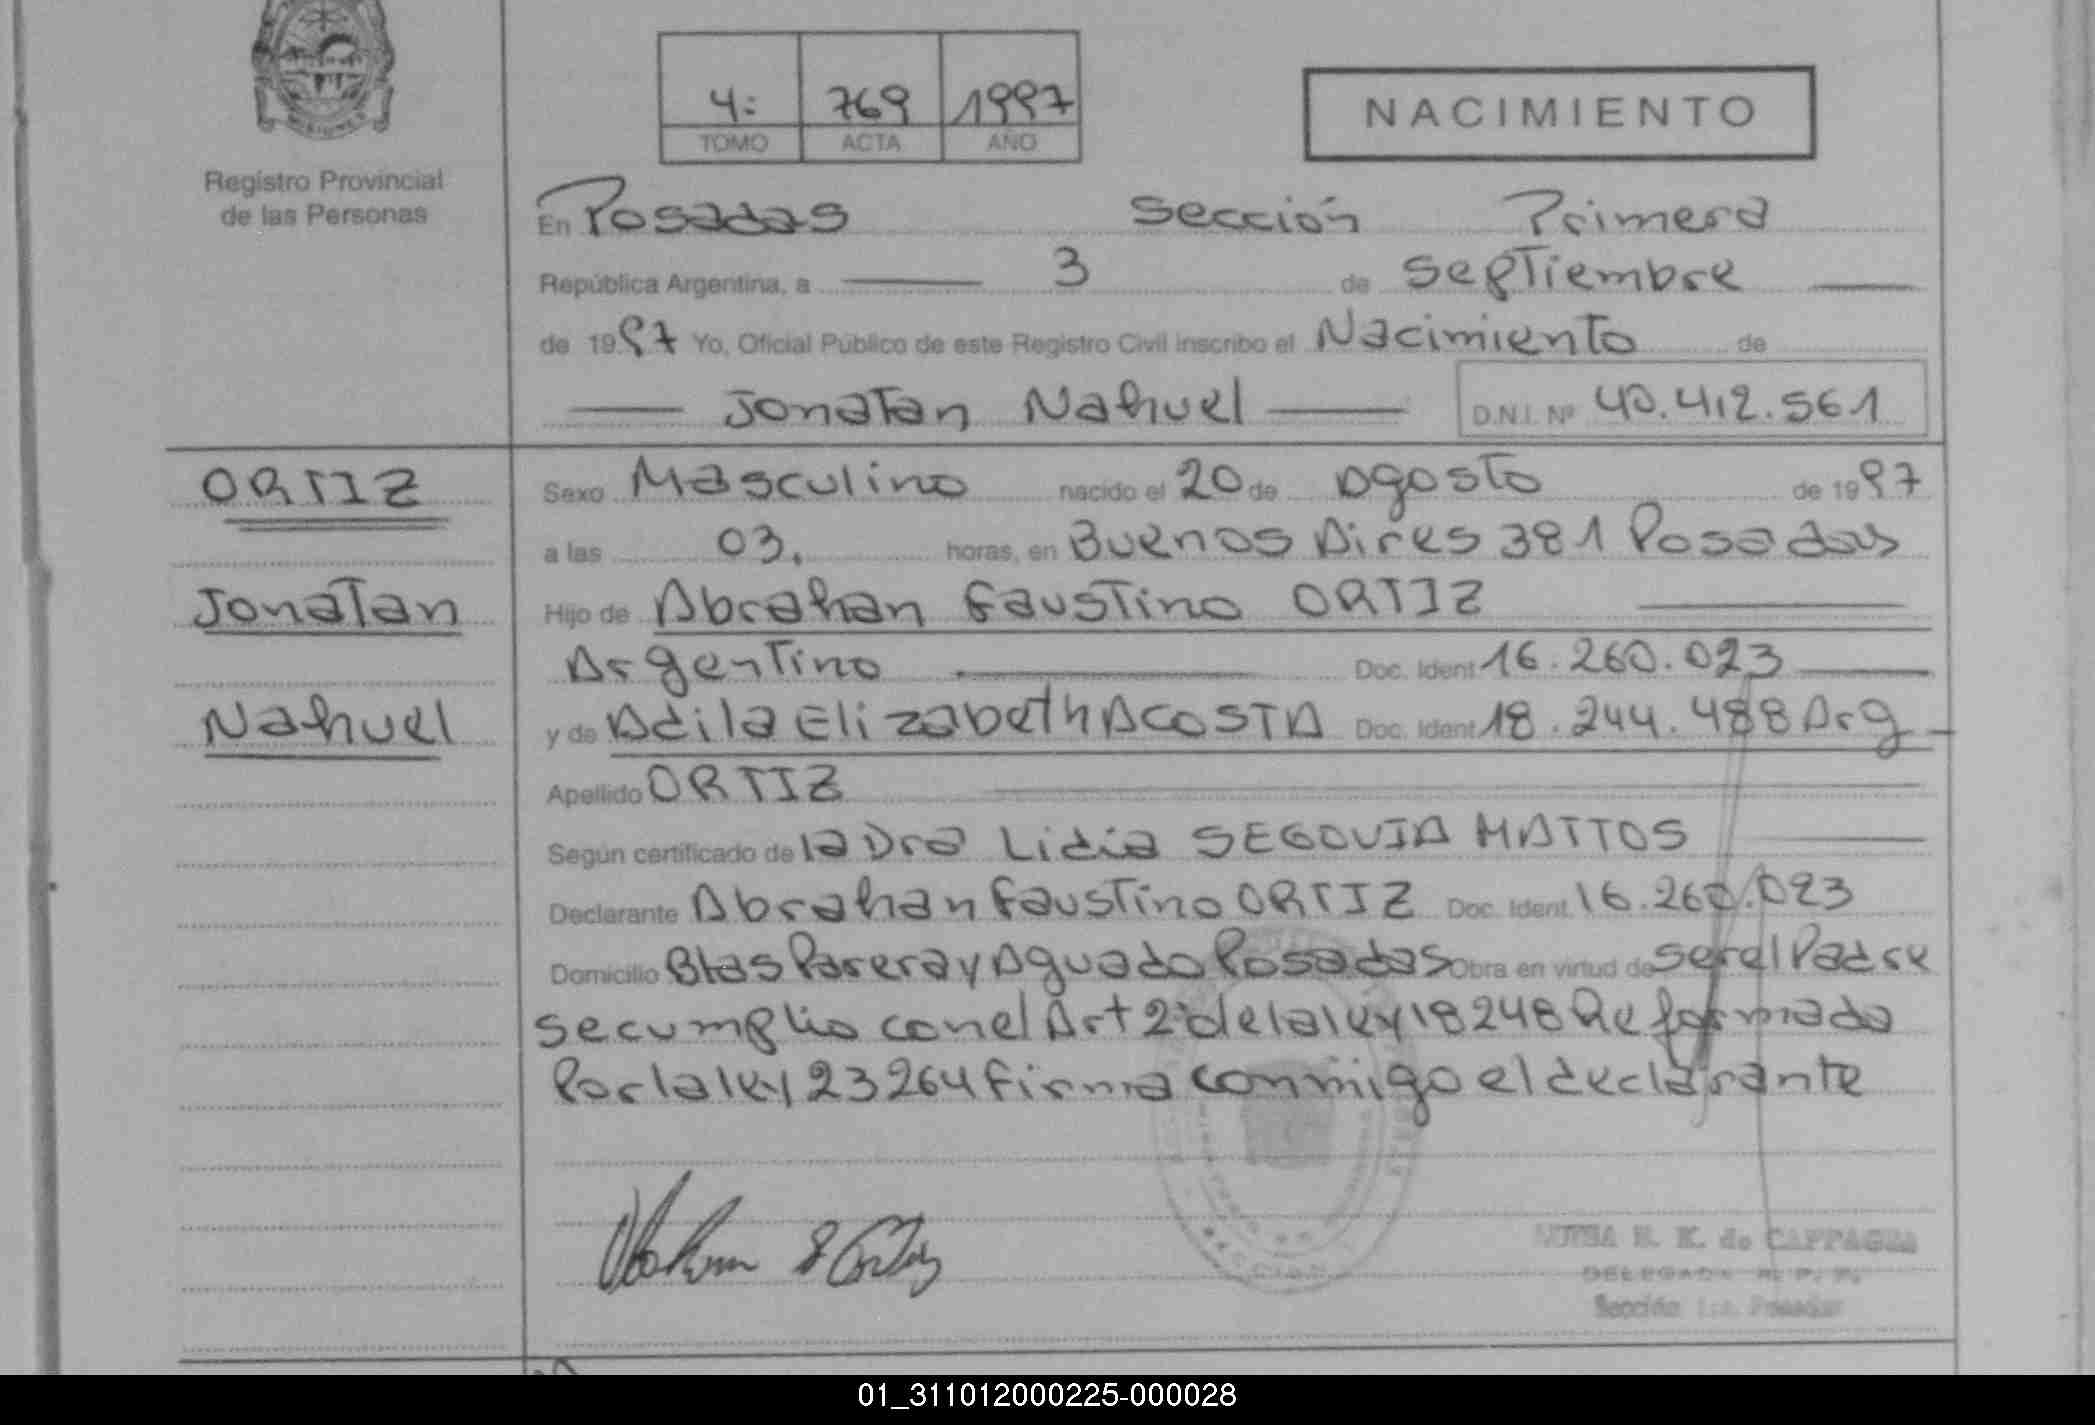 MISIONES
Registro Provincial
de las Personas
4: 769 1997
TOMO ACTA AÑO
NACIMIENTO
En Posadas Sección Primera
República Argentina, a 3 de Septiembre
de 1997 Yo, Oficial Público de este Registro Civil inscribo el Nacimiento de
Jonatan Nahuel D.N.I. Nº 40.412.561
ORTIZ
Jonatan
Nahuel
Sexo Masculino nacido el 20 de Agosto de 1997
a las 03. horas, en Buenos Aires 381 Posadas
Hijo de Abrahan Faustino ORTIZ
Argentino Doc. Ident 16.260.023
y de Adila Elizabeth ACOSTA Doc. Ident 18.244.488 Arg
Apellido ORTIZ
Según certificado de la Dra Lidia SEGOVIA MATTOS
Declarante Abrahan Faustino ORTIZ Doc. Ident. 16.260.023
Domicilio Blas Parera y Aguado Posadas Obra en virtud de ser el Padre
se cumplio con el Art 2º de la ley 18248 Reformada
Por la ley 23264 firma conmigo el declarante
de CAPPAGLIA
DELEGADA R. P. P.
Sección 1ra. Posadas
01_311012000225-000028